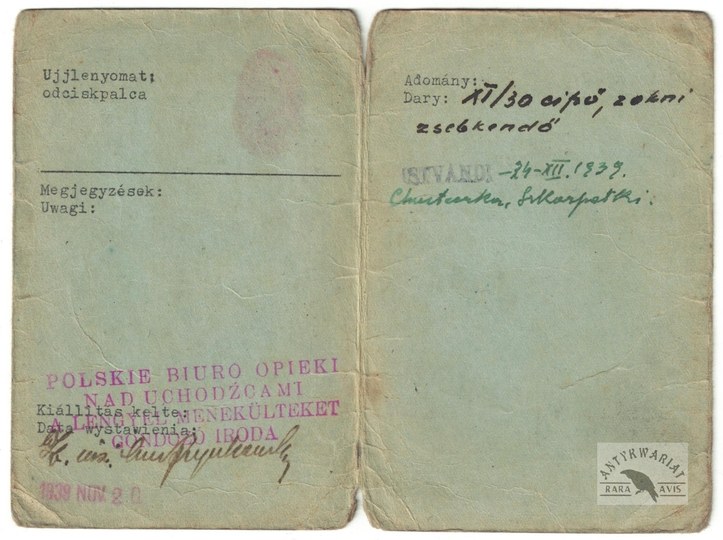 Ujjlenyomat;
odciskpalca
Megjegyzések:
Uwagi:
POLSKIE BIURO OPIEKI
NAD UCHODŹCAMI
Kiállitás kelte:
A LENGYEL MENEKÜLTEKET
Data wystawienia:
GONDOZÓ IRODA
1939 NOV. 2
Adomány:
Dary: XI/30 cipő, zokni
zsebkendő
ISTVÁNDI - 24-XII. 1939.
Chusteczka, Skarpetki.
ANTYKWARIAT
RARA AVIS